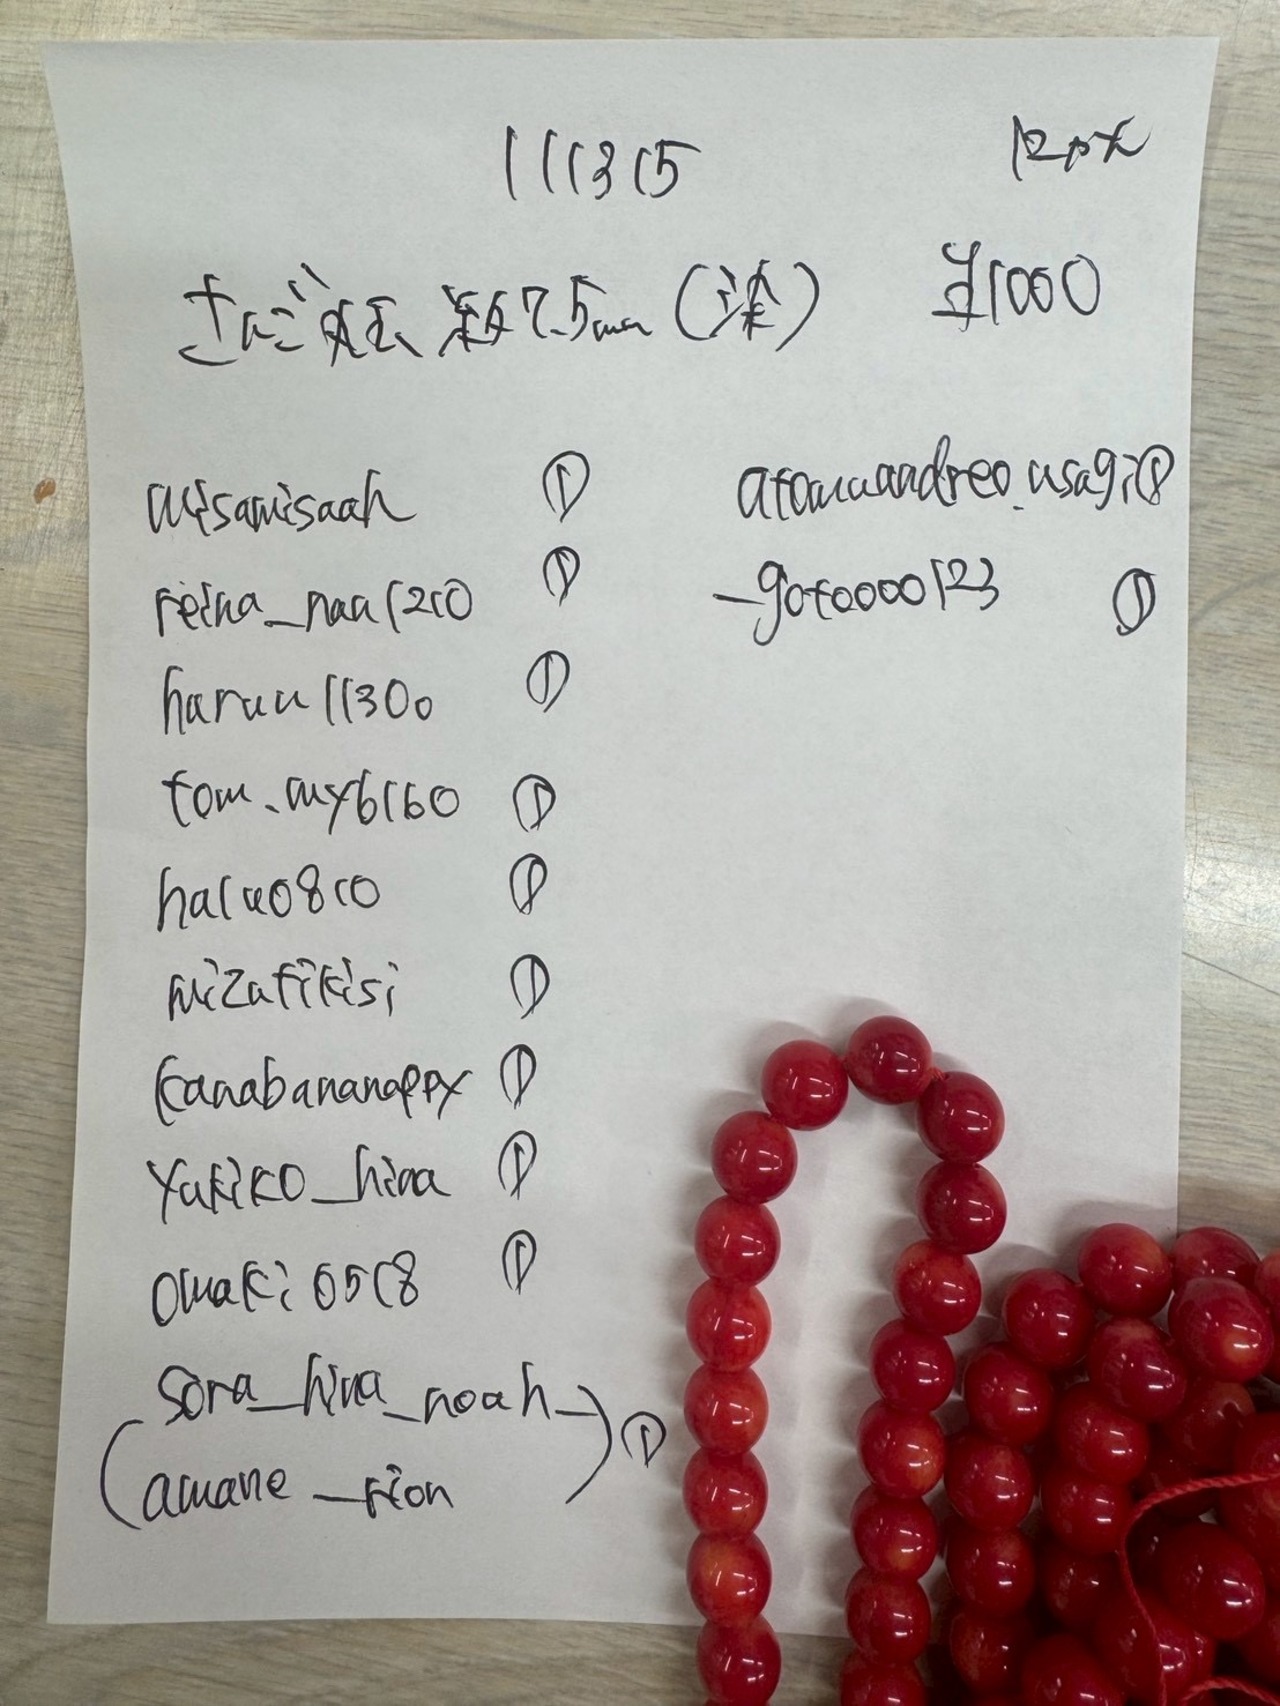 111315
12px
さんご 丸玉 約7.5mm (染)
¥1000
misamisaah ①
reina_naa1210 ①
haruu11300 ①
tom.my6160 ①
haru0810 ①
mizutikisi ①
kanabananappy ①
yukiko_hina ①
omaki0518 ①
(sora_hina_noah_
amane_rion) ①
atomuandreo.usagi ①
_gotoooo123 ①